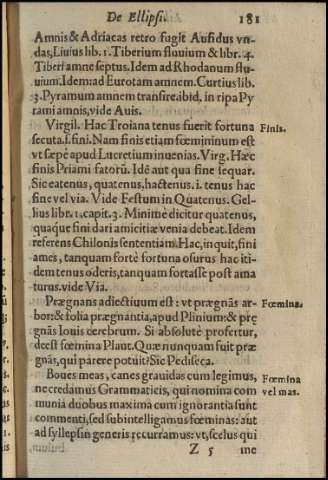 De Ellipsi. 181
Amnis & Adriacas retro fugit Aufidus vn-
das, Liuius lib. 1. Tiberium fluuium & libr. 4.
Tiberi amne septus. Idem ad Rhodanum flu-
uium. Idem: ad Eurotam amnem. Curtius lib.
3. Pyramum amnem transire. ibid. in ripa Py
rami amnis, vide Auis.
Virgil. Hac Troiana tenus fuerit fortuna Finis.
secuta. s. fini. Nam finis etiam fœmininum est
vt sæpè apud Lucretium inuenias. Virg. Hæc
finis Priami fatorũ. Idẽ aut qua fine sequar.
Sic eatenus, quatenus, hactenus. i. tenus hac
fine vel via. Vide Festum in Quatenus. Gel-
lius libr. 1. capit. 3. Minimè dicitur quatenus,
quaque fini dari amicitiæ venia debeat. Idem
referens Chilonis sententiam. Hac, inquit, fini
ames, tanquam fortè fortuna osurus hac iti-
dem tenus oderis, tanquam fortasse post ama
turus. vide Via.
Prægnans adiectiuum est: vt prægnãs ar- Fœmina.
bor: & folia prægnantia, apud Plinium: & prę
gnãs louis cerebrum. Si absolutè profertur,
deest fœmina Plaut. Quæ nunquam fuit præ
gnãs, qui parere potuit? Sic Pediseca.
Boues meas, canes grauidas cum legimus, Fœmina
ne credamus Grammaticis, qui nomina com vel mas.
munia duobus maxima cum ignorantia sunt
commenti, sed subintelligamus fœminas: aut
ad syllepsin generis recurramus: vt, scelus qui
Z 5 me